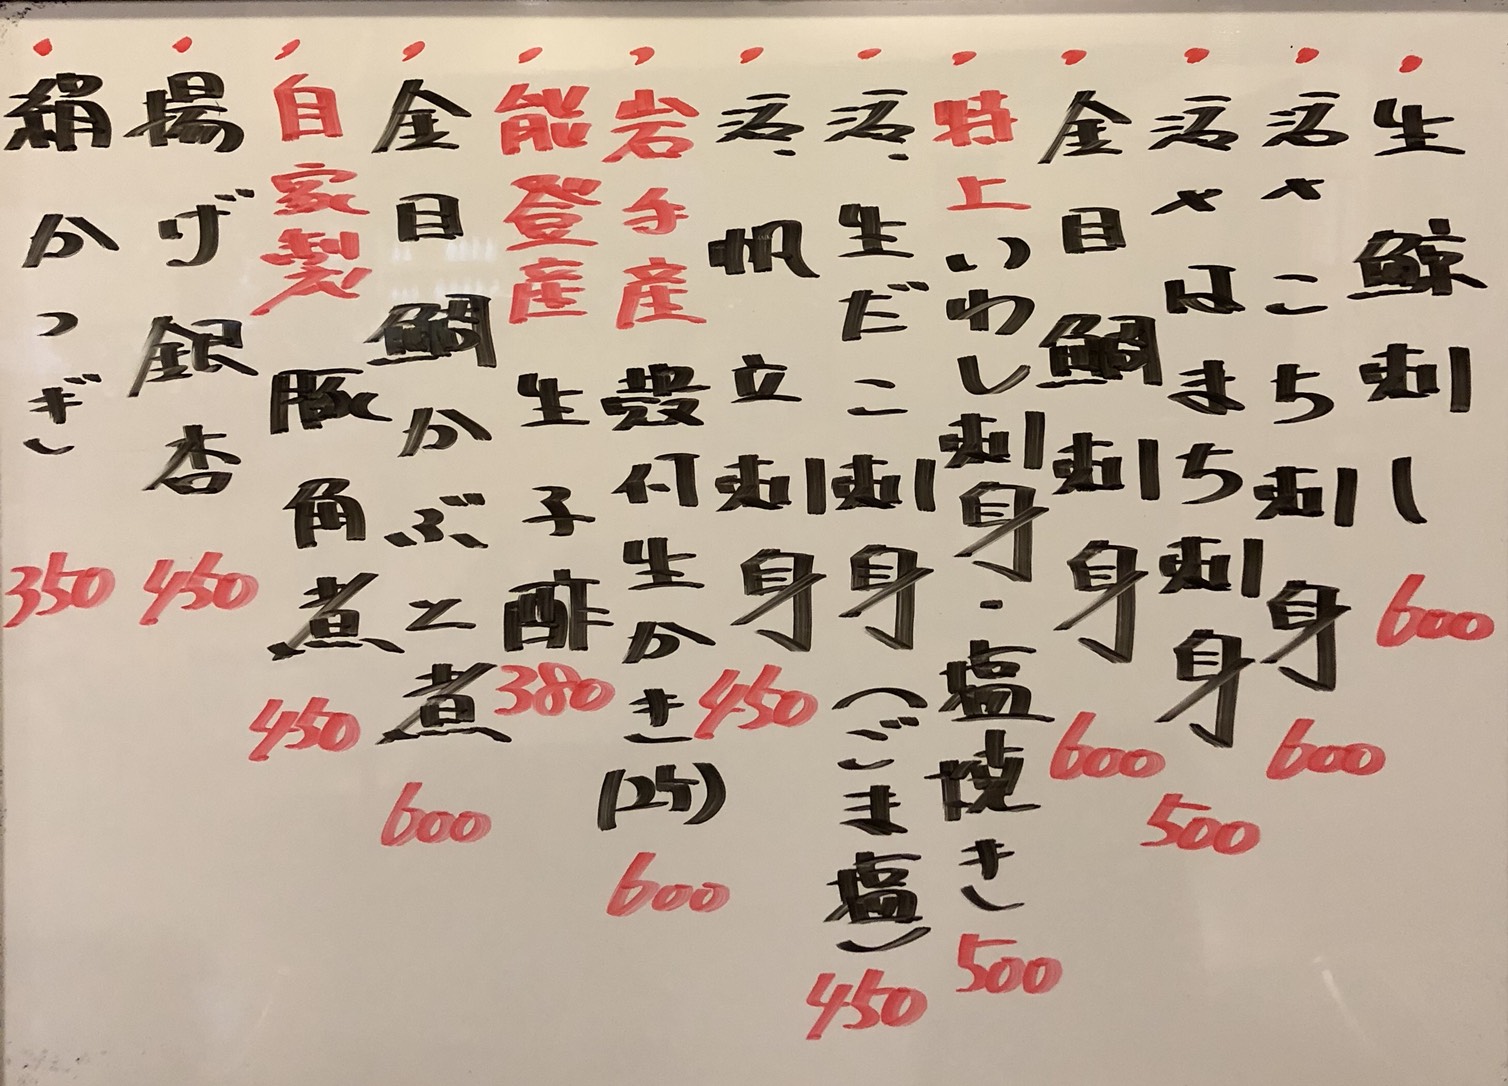 生鯨刺し 600
活〆こち刺身 600
活〆はまち刺身 500
金目鯛刺身 600
特上いわし刺身・塩焼き 500
活生だこ刺身(ごま塩) 450
活帆立刺身 450
岩手産殻付生かき(2ケ) 600
能登産生子酢 380
金目鯛かぶと煮 600
自家製豚角煮 450
揚げ銀杏 450
絹かつぎ 350